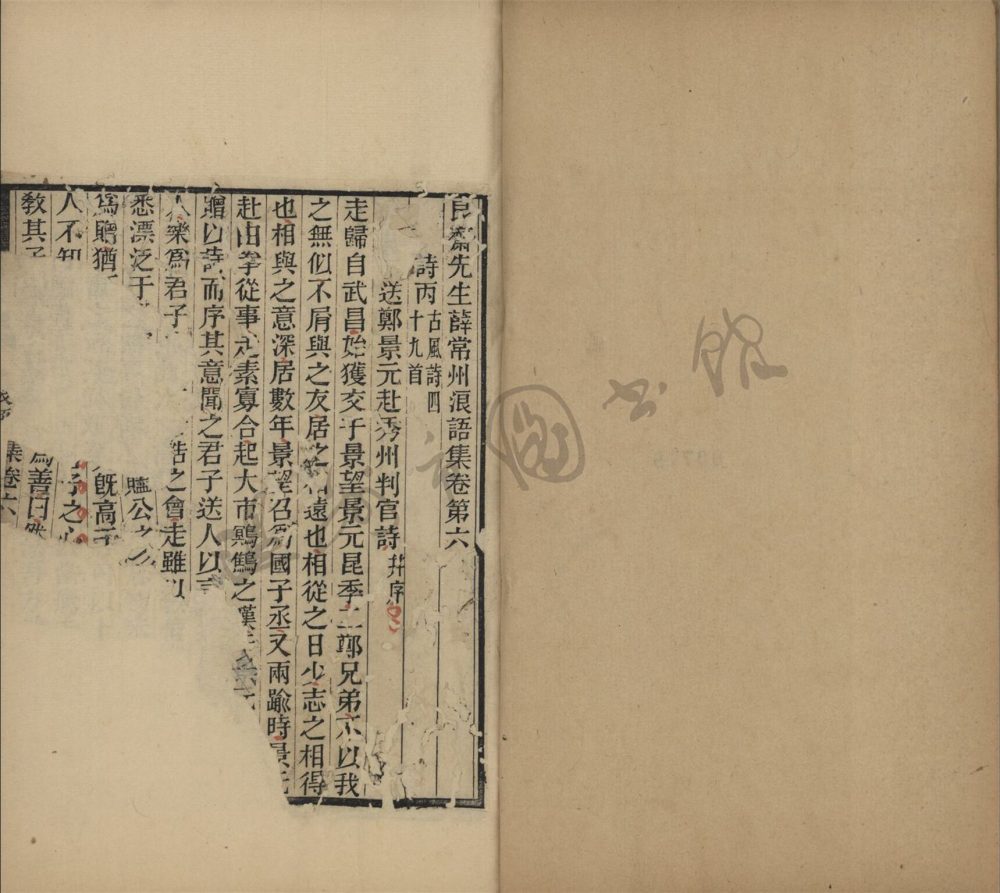 艮齋先生薛常州浪語集卷第六
詩丙 古風詩四十九首
送鄭景元赴秀州判官詩 幷序
走歸自武昌始獲交于景望景元昆季二鄭兄弟不以我
之無似不肩與之友居之相遠也相從之日少志之相得
也相與之意深居數年景望召爲國子丞又兩踰時景元
赴由拳從事走素寡合起大市鷦鷯之嘆
贈以詩而序其意聞之君子送人以言
人樂爲君子 之會走雖以
悉漂泛于 公之
爲贈猶 旣高于
人不知 之
教其子 爲善日
集卷六
圖書館